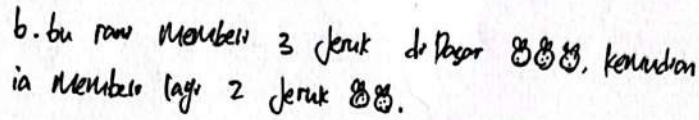 b. bu rani membeli 3 Jeruk di Pasar , kemudian
ia membeli lagi 2 Jeruk .